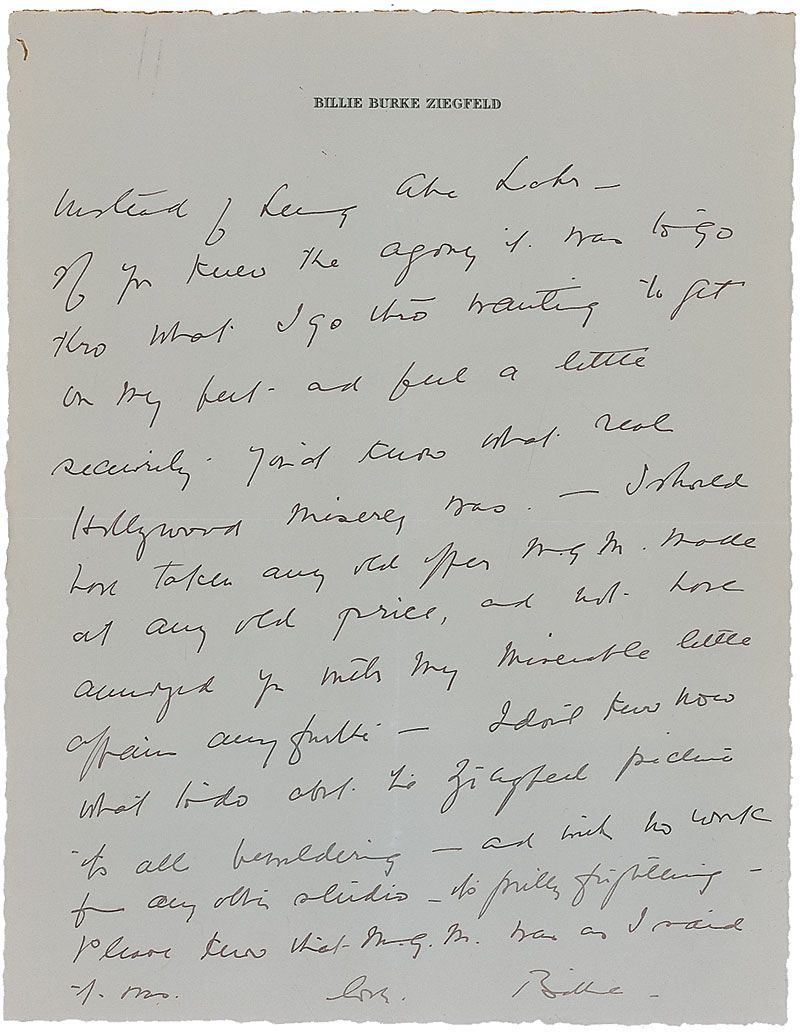 BILLIE BURKE ZIEGFELD
Instead of being Abe Lehr —
If you knew the agony it was to go
thro what I go thro wanting to get
on my feet - and feel a little
security - you'd know what real
Hollywood misery was. — I should
have taken any old offer M.G.M. made
at any old price, and not have
annoyed you with my miserable little
affairs any further — I don't know now
what to do abt. the Ziegfeld picture
its all bewildering — and with no work
from any other studio - its pretty frightening -
Please know that M.G.M. was as I said
it was. love. Billie -